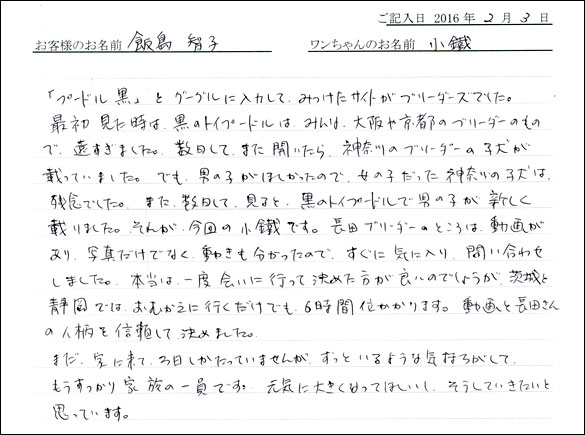 ご記入日 2016 年 2 月 3 日
お客様のお名前 飯島 智子 ワンちゃんのお名前 小鐵
「プードル 黒」と グーグルに入力して、みつけたサイトがブリーダーズでした。
最初 見た時は、黒のトイプードルは、みんな、大阪や京都のブリーダーのもの
で、遠すぎました。数日して、また 開いたら、神奈川のブリーダーの子犬が
載っていました。でも、男の子がほしかったので、女の子だった神奈川の子犬は、
残念でした。また、数日して、見ると、黒のトイプードルで男の子が 新しく
載りました。それが、今回の小鐵です。長田ブリーダーのところは、動画が
あり、写真だけでなく、動きも分かったので、すぐに気に入り、問い合わせ
しました。本当は、一度会いに行って決めた方が良いのでしょうが、茨城と
静岡では、おむかえに行くだけでも、6時間位かかります。動画と長田さん
の人柄を信頼して、決めました。
まだ、家に来て、3日しかたっていませんが、ずっといるような気持ちがして、
もうすっかり家族の一員です。元気に大きくなってほしいし、そうしていきたいと
思っています。